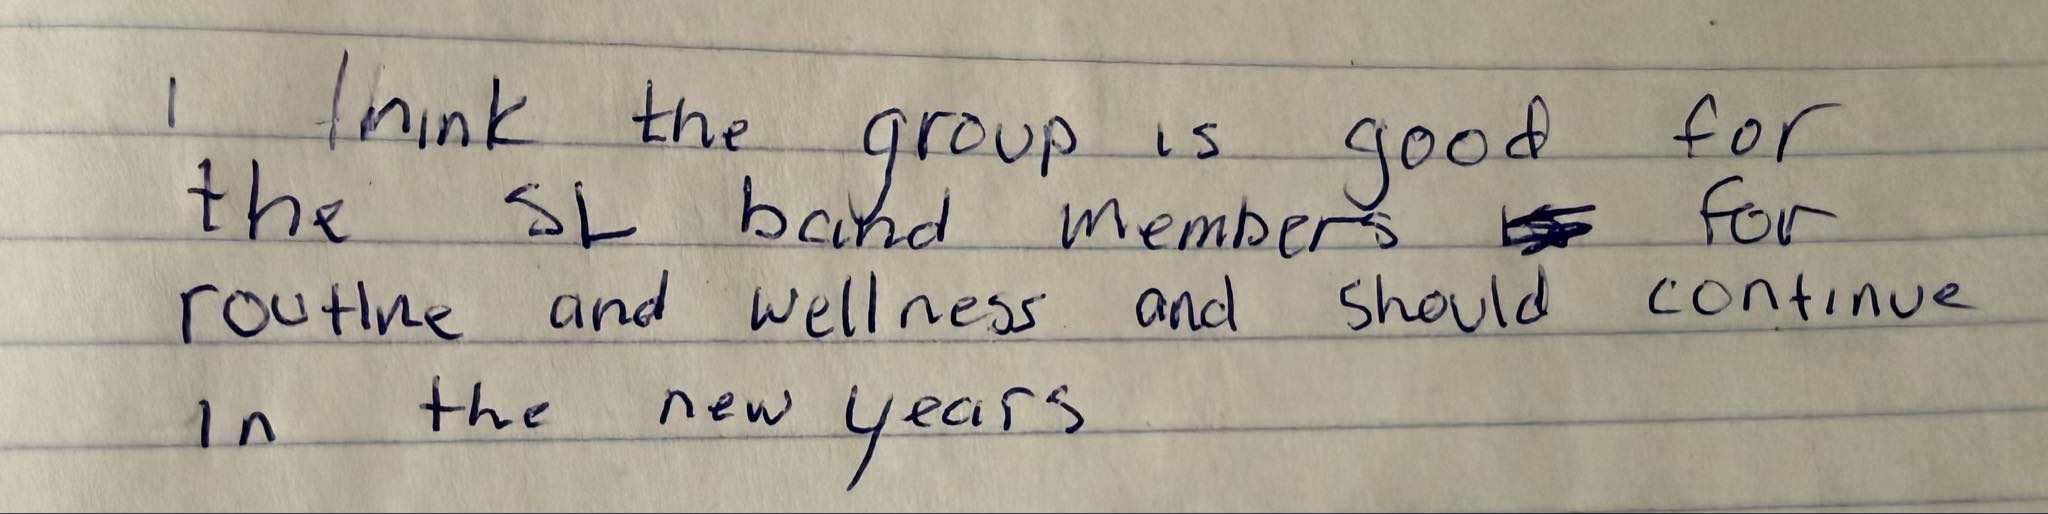 I think the group is good for
the SL band members for
routine and wellness and should continue
in the new years